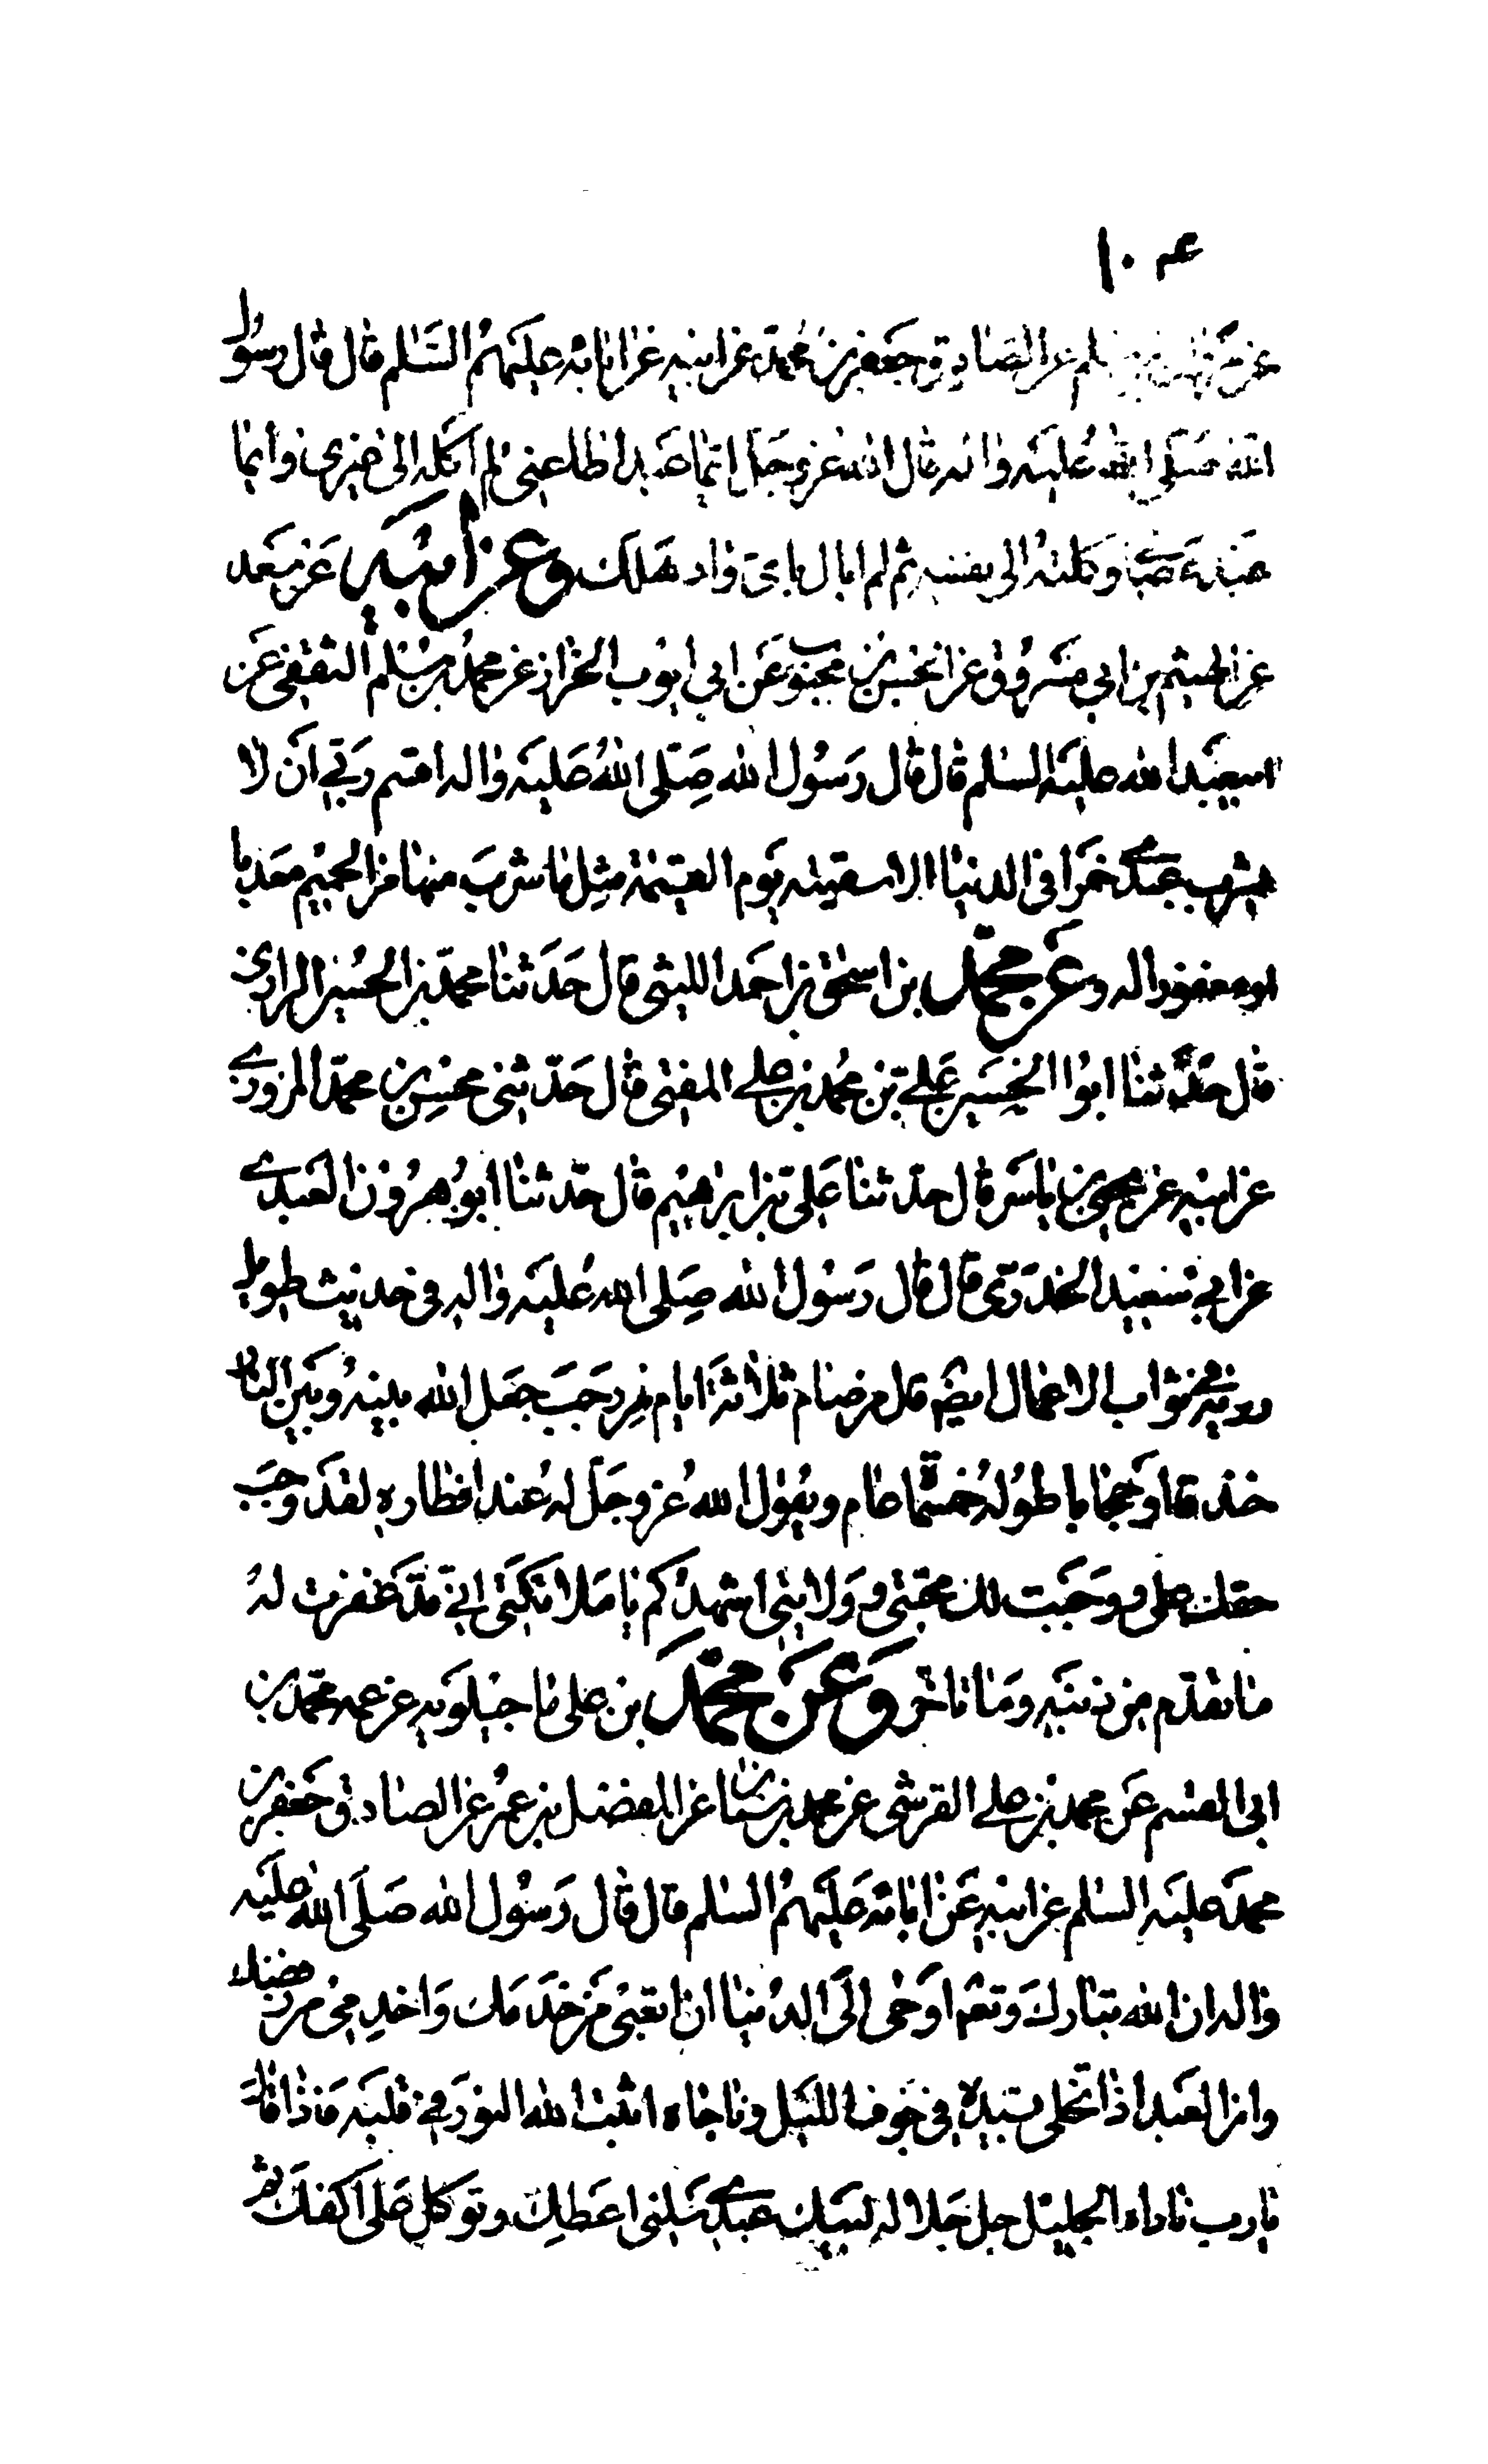 ١٠٤
عن الصادق جعفر بن محمد عن ابيه عن ابائه عليهم السلم قال قال رسول
الله صلى الله عليه واله قال الله عز وجل ايما عبد اطاعنى لم اكله الى غيرى وايما
عبد عصانى وكلته الى نفسه ثم لم ابال باى واد هلك وعن ابيه عن سعد
عن الهيثم بن ابى مسروق عن الحسن بن محبوب عن ابى ايوب الخزاز عن محمد بن مسلم الثقفى عن
ابيعبد الله عليه السلم قال قال رسول الله صلى الله عليه واله اقسم ربى ان لا
يشرب عبد لى خمرا فى الدنيا الا سقيته يوم القيمة مثل ما شرب منها من الحميم معذبا
او مغفورا له وعن محمد بن اسحق بن احمد الليثى قال حدثنا محمد بن الحسين الرازى
قال حدثنا ابو الحسين على بن محمد بن على المفتى قال حدثنى محسن بن محمد المروزى
عن ابيه عن يحيى بن ياسر قال حدثنا على بن ابراهيم قال حدثنا ابو هرون العبدى
عن ابى سعيد الخدرى قال قال رسول الله صلى الله عليه واله فى حديث طويل
فى ثواب الاعمال ايضا قال من صام ثلاثة ايام من رجب جعل الله بينه وبين النار
خندقا او حجابا طوله خمسمائة عام ويقول الله عز وجل له عند افطاره لقد وجب
حقك على ووجبت لك محبتى وولايتى اشهدكم يا ملائكتى انى قد غفرت له
ما تقدم من ذنبه وما تاخر وعن محمد بن على ماجيلويه عن عمه محمد بن
ابى القسم عن محمد بن على القرشى عن محمد بن سنان عن المفضل بن عمر عن الصادق جعفر بن
محمد عليه السلم عن ابيه عن ابائه عليهم السلم قال قال رسول الله صلى الله عليه
واله ان الله تبارك وتعه اوحى الى الدنيا ان اتعبى من خدمك واخدمى من رفضك
وان العبد اذا تخلى بسيده فى جوف الليل وناجاه اثبت الله النور فى قلبه فاذا قال
يا رب ناداه الجليل جل جلاله لبيك عبدى سلنى اعطك وتوكل على اكفك ثم